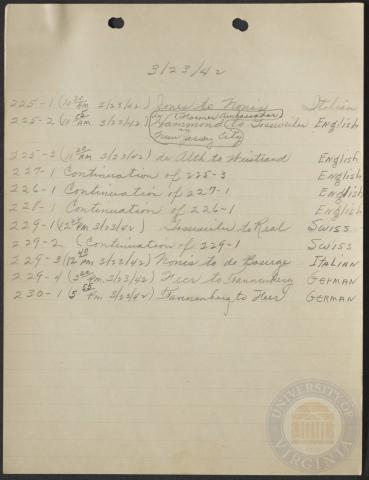 3/23/42
225-1 (10 AM 3/23/42) Jones to Nonis Italian
225-2 (10 55 AM 3/23/42) by Former Ambassador Hammond to Gossweiler English
in New Jersey City
225-3 (11 AM 3/23/42) de Alth to English
227-1 Continuation of 225-3 English
226-1 Continuation of 227-1 English
228-1 Continuation of 226-1 English
229-1 (PM 3/23/42) Gossweiler to Real Swiss
229-2 (Continuation of 229-1 Swiss
229-3 (12 40 PM 3/23/42) Nonis to de Italian
229-4 (3 PM 3/23/42) Heer to Tannenberg German
230-1 (5 55 PM 3/23/42) Tannenberg to Heer German
UNIVERSITY OF VIRGINIA